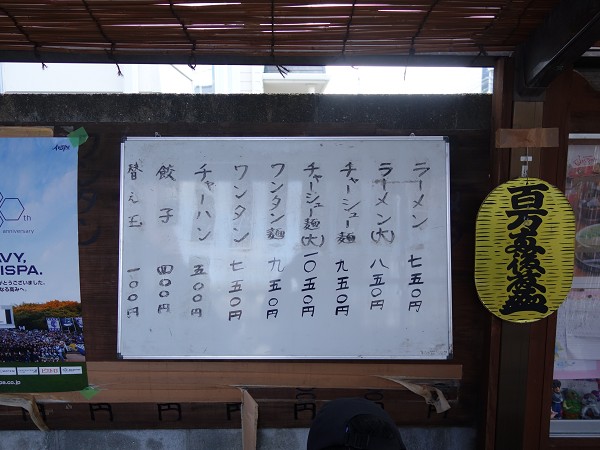 ラーメン 七五〇円
ラーメン(大) 八五〇円
チャーシュー麺 九五〇円
チャーシュー麺(大) 一〇五〇円
ワンタン麺 九五〇円
ワンタン 七五〇円
チャーハン 五〇〇円
餃子 四〇〇円
替え玉 一〇〇円
th
anniversary
VY,
ISPA.